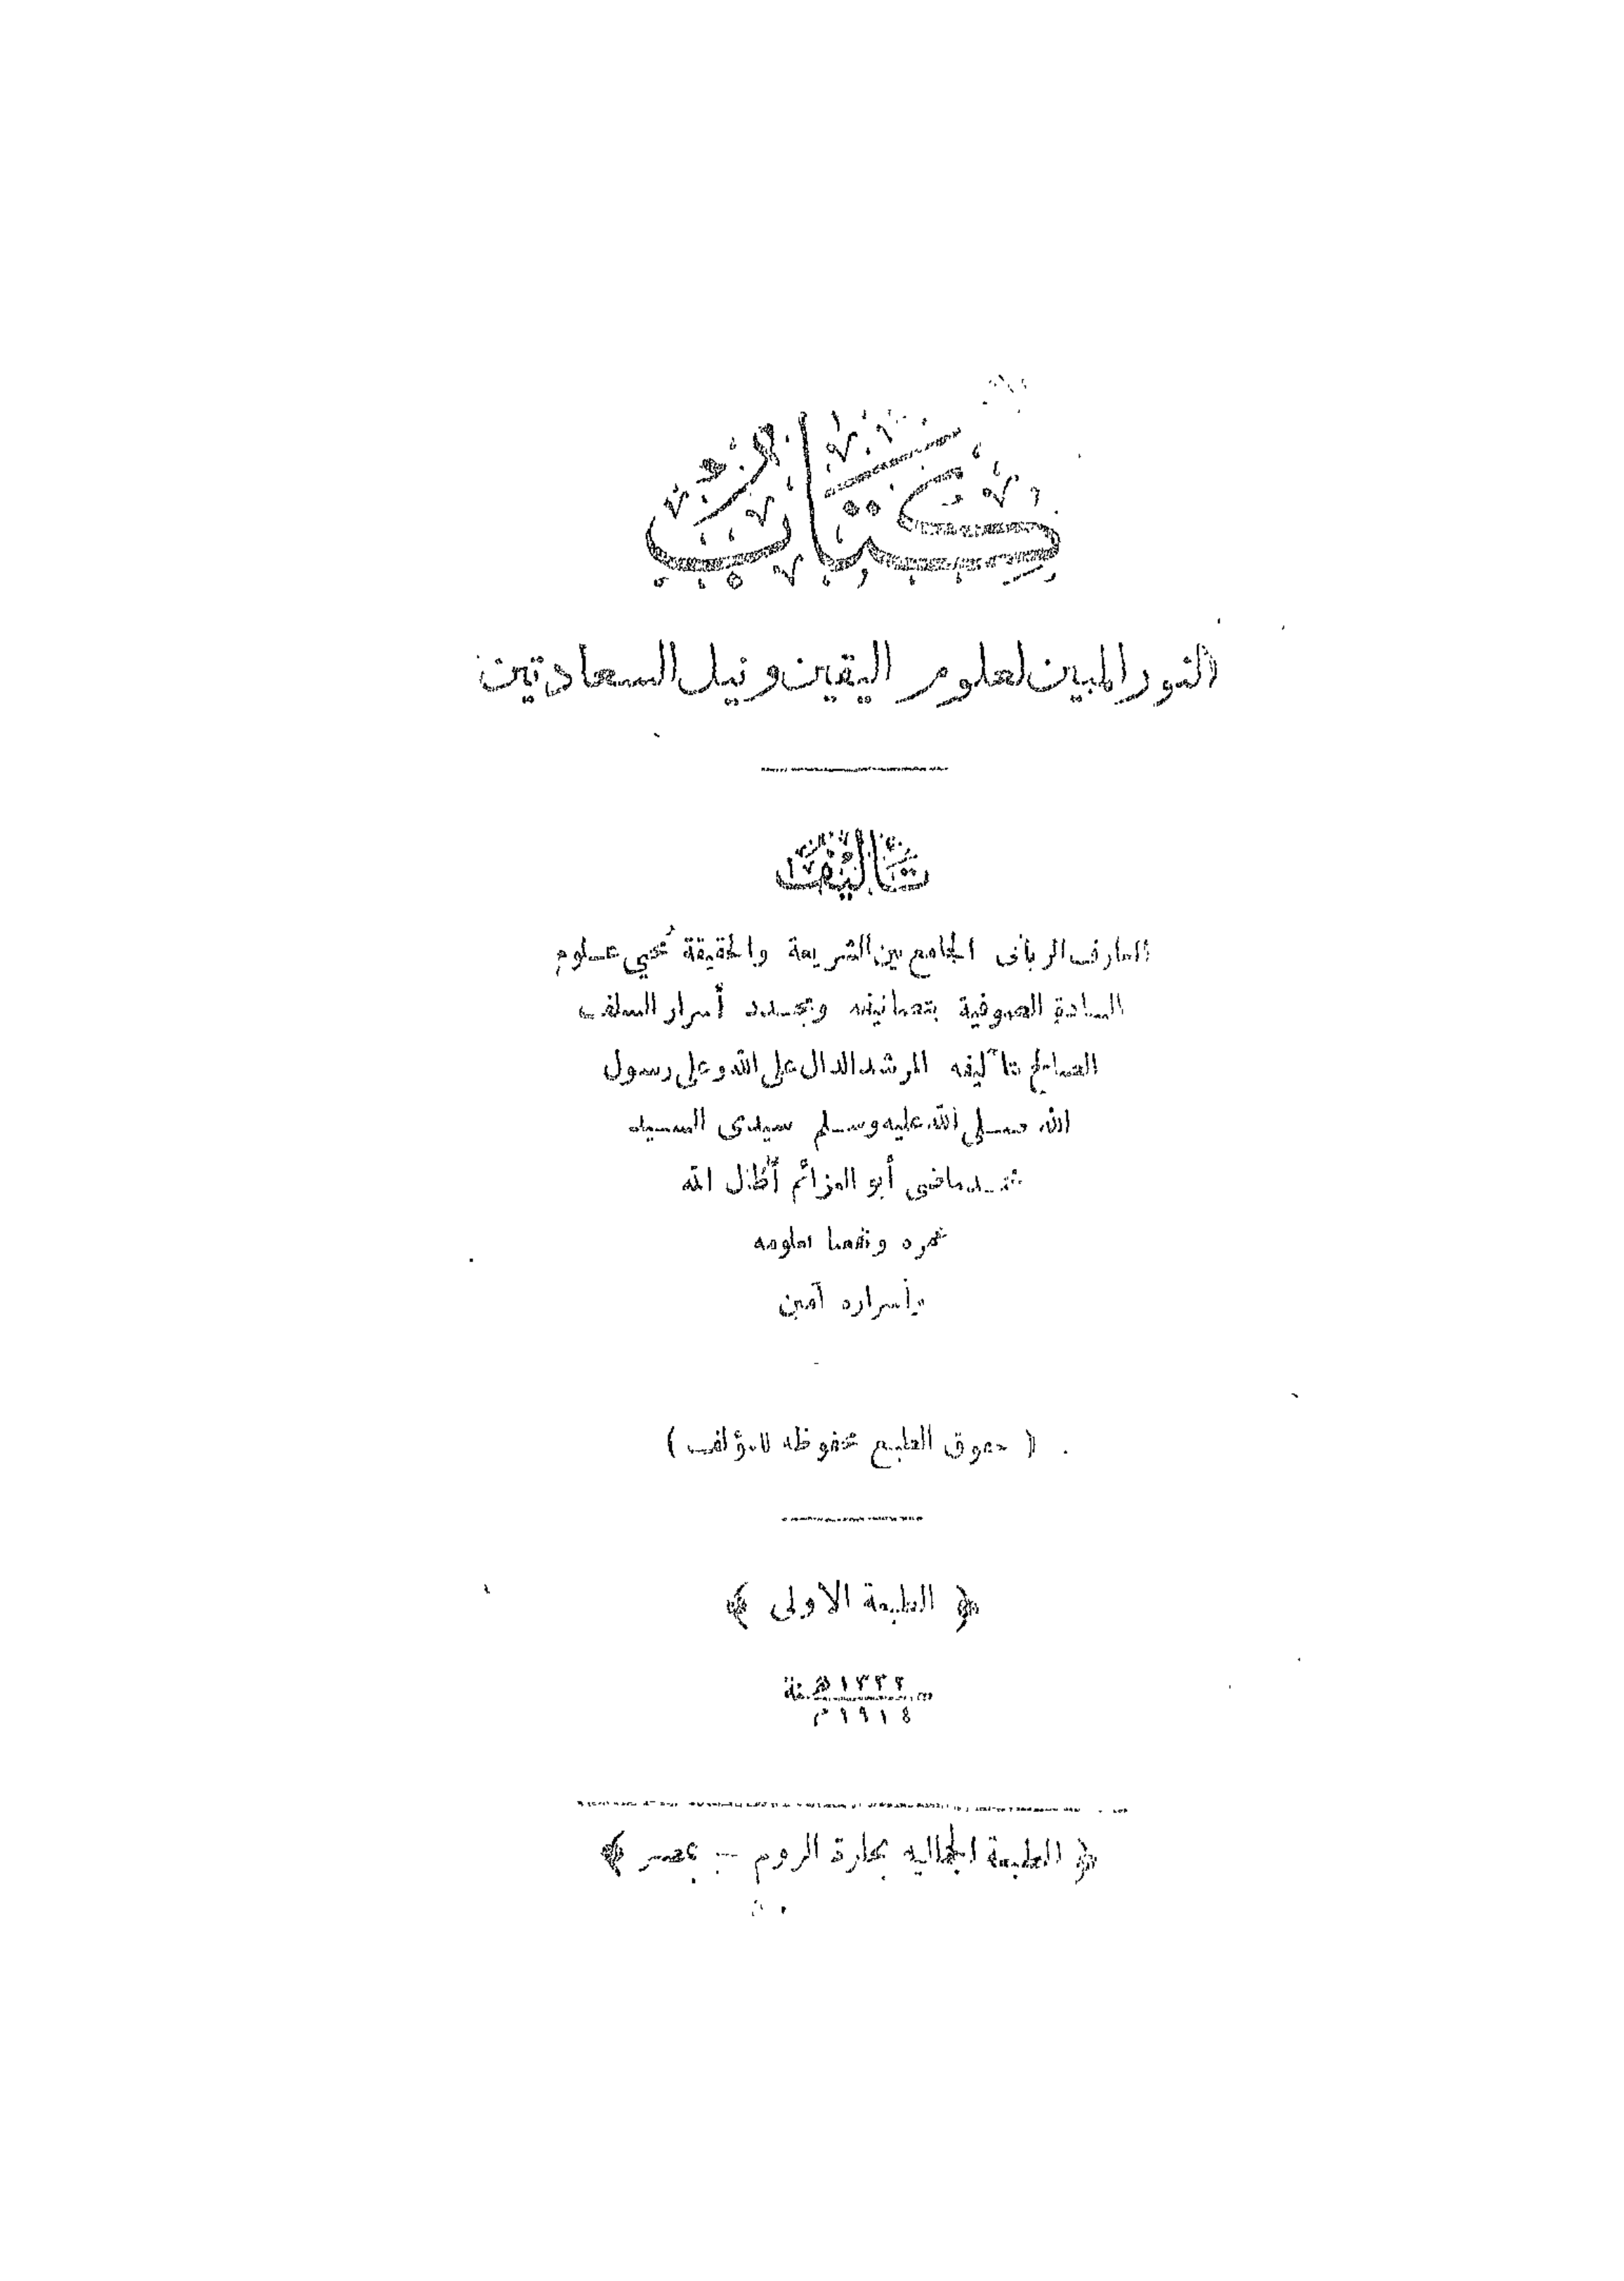 كِتَابُ
النور المبين لعلوم اليقين ونيل السعادتين
تَأليفُ
العارف الربانى الجامع بين الشريعة والحقيقة مُحيي علوم
السادة الصوفية بتصانيفه ومجدد أسرار السلف
الصالح بتآليفه المرشد الدال على الله وعلى رسول
الله صلى الله عليه وسلم سيدى السيد
محمد ماضى أبو العزائم أطال الله
عمره ونفعنا بعلومه
وأسراره آمين
( حقوق الطبع محفوظه للمؤلف )
﴿ الطبعة الاولى ﴾
سنة ١٣٣٢ هـ
١٩١٤ م
﴿ المطبعة الجماليه بحارة الروم – بمصر ﴾